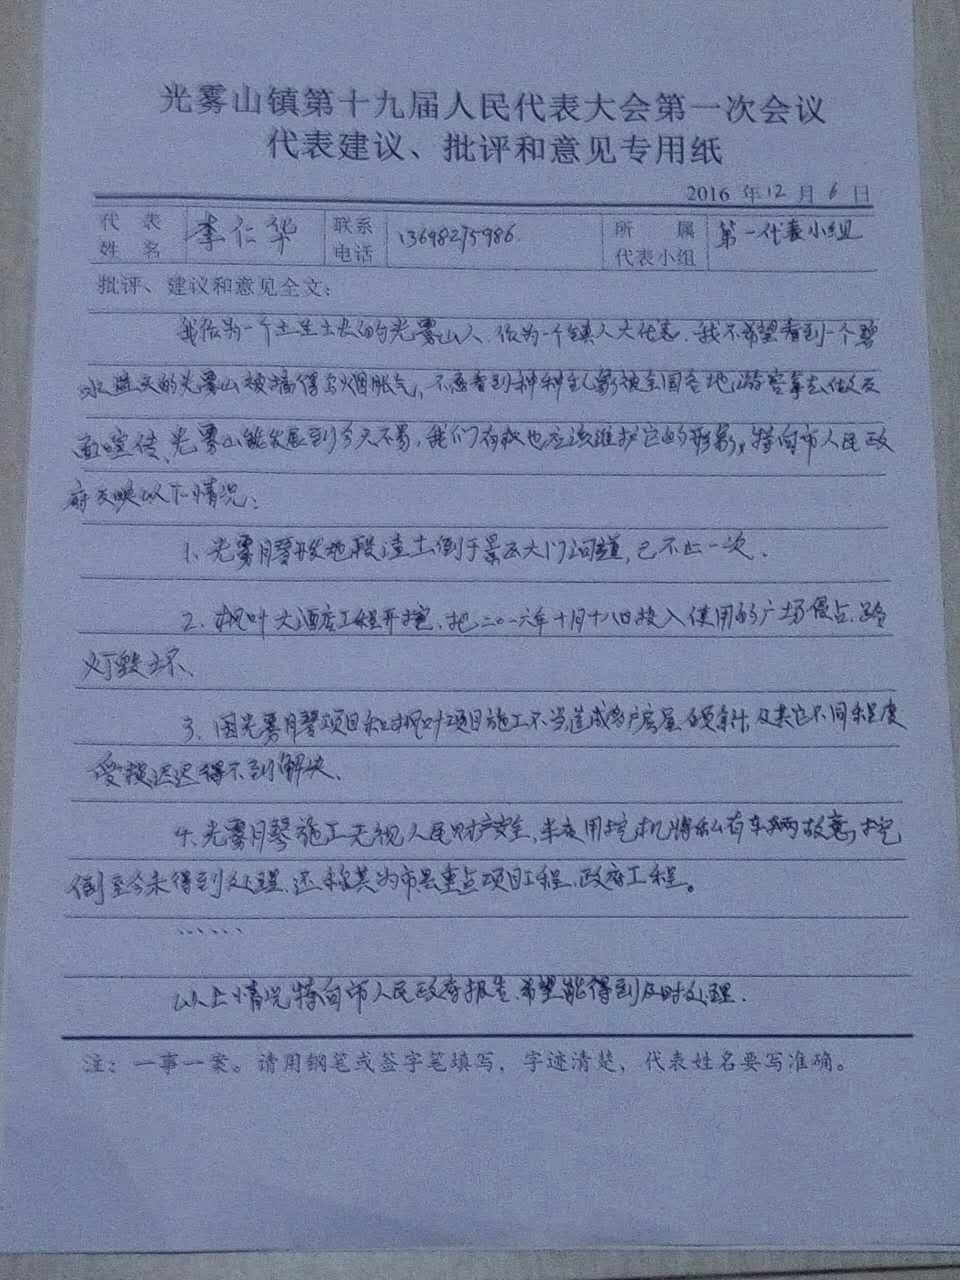 光雾山镇第十九届人民代表大会第一次会议
代表建议、批评和意见专用纸
2016 年 12 月 6 日
代表姓名 李仁华 联系电话 13698275986. 所属代表小组 第一代表小组
批评、建议和意见全文：
我作为一个土生土长的光雾山人、作为一个镇人大代表.我不希望看到一个碧
水蓝天的光雾山被搞得乌烟胀气,不愿看到种种乱象被全国各地游客拿去做反
面宣传、光雾山能发展到今天不易,我们有权也应该维护它的形象,特向市人民政
府反映以下情况：
1、光雾月琴开发地段渣土倒于景区大门河道,已不止一次.
2、枫叶大酒店工程开挖,把二〇一六年十月十八日投入使用的广场侵占、路
灯毁坏、
3、因光雾月琴项目和枫叶项目施工不当造成多户房屋倾斜,及其它不同程度
受损迟迟得不到解决、
4、光雾月琴施工无视人民财产安全,半夜用挖机将私有车辆故意挖
倒至今未得到处理,还称其为市县重点项目工程、政府工程。
......
以上情况特向市人民政府报告、希望能得到及时处理.
注：一事一案。请用钢笔或签字笔填写，字迹清楚，代表姓名要写准确。